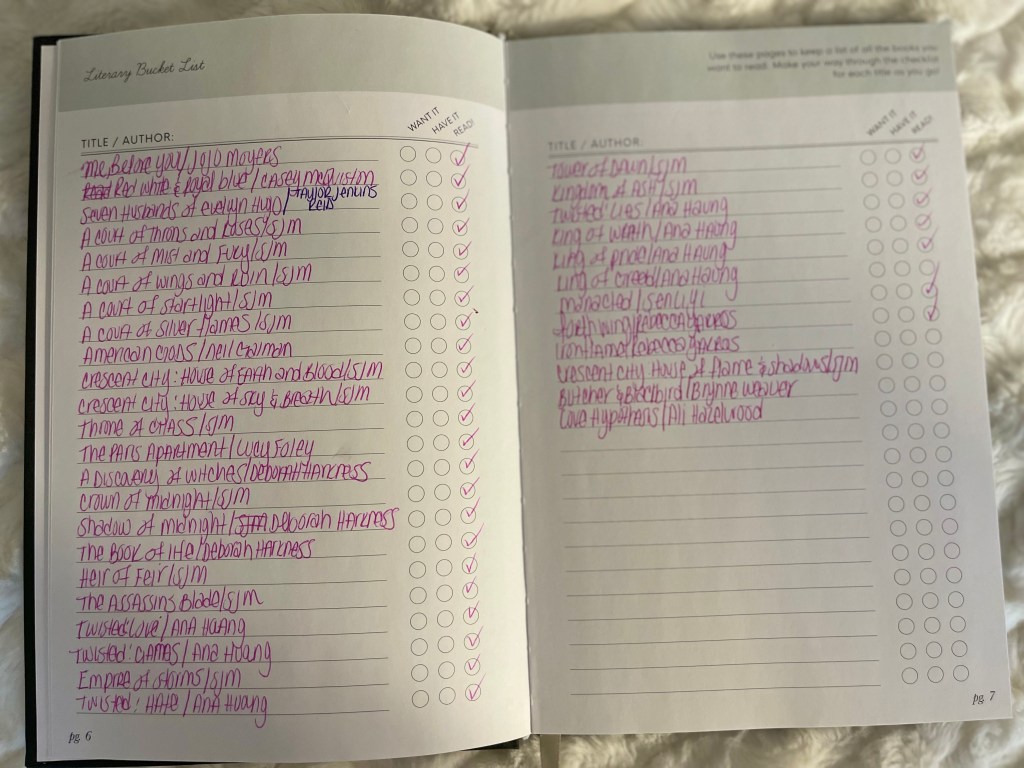 Literary Bucket List
TITLE / AUTHOR:
WANT IT
HAVE IT
READ!
Me Before you/JoJo Moyers
Red white & Royal blue/Casey
Seven Husbands of Evelyn Hugo/Taylor Jenkins
Reid
A court of Throns and Roses/S/J/M
A court of Mist and Fury/S/J/M
A court of wings and Ruin/S/J/M
A court of Starlight/S/J/M
A court of Silver flames/S/J/M
American Gods/Neil Gaiman
Crescent City: House of Earth and Blood/S/J/M
Crescent City: House of Sky & Breath/S/J/M
Throne of GLASS/S/J/M
The Paris Apartment/Lucy Foley
A Discovery of Witches/Deborah Harkness
Crown of midnight/S/J/M
Shadow of midnight/Deborah Harkness
The Book of life/Deborah Harkness
Heir of Feir/S/J/M
The Assassins Blade/S/J/M
Twisted: Love/Ana Huang
Twisted: Games/Ana Huang
Empire of Storms/S/J/M
Twisted: Hate/Ana Huang
pg. 6
Use these pages to keep a list of all the books you
want to read. Make your way through the checklist
for each title as you go!
TITLE / AUTHOR:
WANT IT
HAVE IT
READ!
Tower of Dawn/S/J/M
Kingdom of Ash/S/J/M
Twisted: Lies/Ana Haung
King of Wrath/Ana Haung
King of Pride/Ana Haung
King of Greed/Ana Haung
Manacled/
Forthwing/Rebecca Yarros
Iron flame/Rebecca
Crescent City House of flame & shadows/S/J/M
Butcher & Blackbird/Brynne weaver
Love Hypothens/Ali Hazelwood
pg. 7